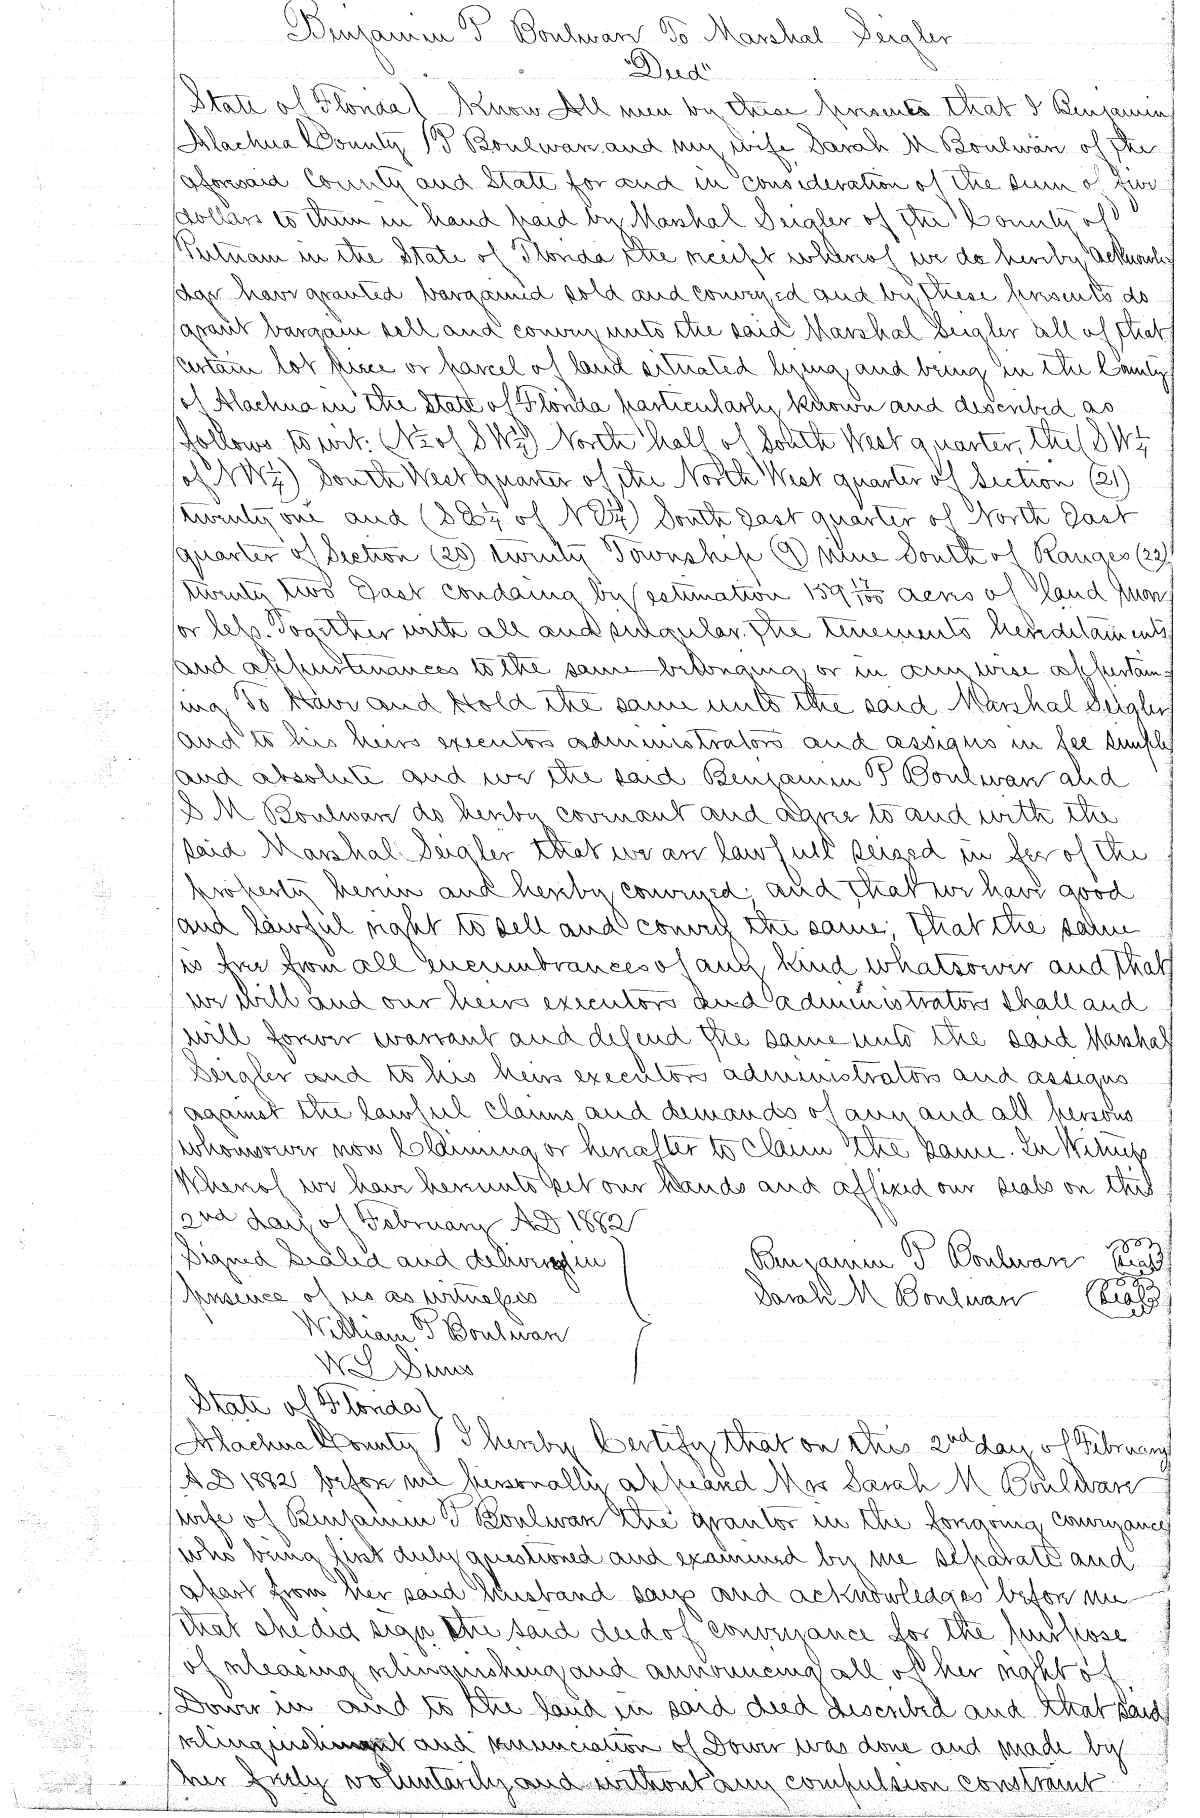 Benjamin P Boulware To Marshal Seigler
"Deed"
State of Florida } Know All men by these presents that I Benjamin
Alachua County } P Boulware and my wife Sarah M Boulware of the
aforesaid County and State for and in consideration of the sum of five
dollars to them in hand paid by Marshal Seigler of the County of
Putnam in the State of Florida the receipt whereof we do hereby acknowle
dge have granted bargained sold and conveyed and by these presents do
grant bargain sell and convey unto the said Marshal Seigler all of that
certain lot piece or parcel of land situated lying and being in the County
of Alachua in the State of Florida particularly known and described as
follows to wit: (N½ of SW¼) North half of South West quarter, the (SW¼
of NW¼) South West quarter of the North West quarter of Section (21)
twenty one and (SE¼ of NE¼) South East quarter of North East
quarter of Section (20) twenty Township (9) nine South of Ranges (22)
twenty two East condaing by estimation 159 17/100 acres of land more
or less. Together with all and singular the tenements hereditaments
and appurtenances to the same belonging or in any wise appertain-
ing To Have and Hold the same unto the said Marshal Seigler
and to his heirs executors administrators and assigns in fee simple
and absolute and we the said Benjamin P Boulware and
S M Boulware do hereby covenant and agree to and with the
said Marshal Seigler that we are lawfull seized in fee of the
property herein and hereby conveyed; and that we have good
and lawful right to sell and convey the same; that the same
is free from all encumbrances of any kind whatsoever and that
we will and our heirs executors and administrators shall and
will forever warrant and defend the same unto the said Marshal
Seigler and to his heirs executors administrators and assigns
against the lawful claims and demands of any and all persons
whomsoever now Claiming or hereafter to claim the same. In Witness
Whereof we have hereunto set our hands and affixed our seals on this
2nd day of February AD 1882
Signed Sealed and delivered in } Benjamin P Boulware (Seal)
presence of us as witnesses } Sarah M Boulware (Seal)
William P Boulware
W L Sims
State of Florida }
Alachua County } I hereby Certify that on this 2nd day of February
AD 1882 before me personally appeard Mrs Sarah M Boulware
wife of Benjamin P Boulware the grantor in the foregoing conveyance
who being first duly questioned and examined by me separate and
apart from her said husband says and acknowledges before me
that she did sign the said deed of conveyance for the purpose
of releasing relinquishing and announcing all of her right of
Dower in and to the land in said deed described and that said
relinquishment and renunciation of Dower was done and made by
her freely voluntarily and without any compulsion constraint